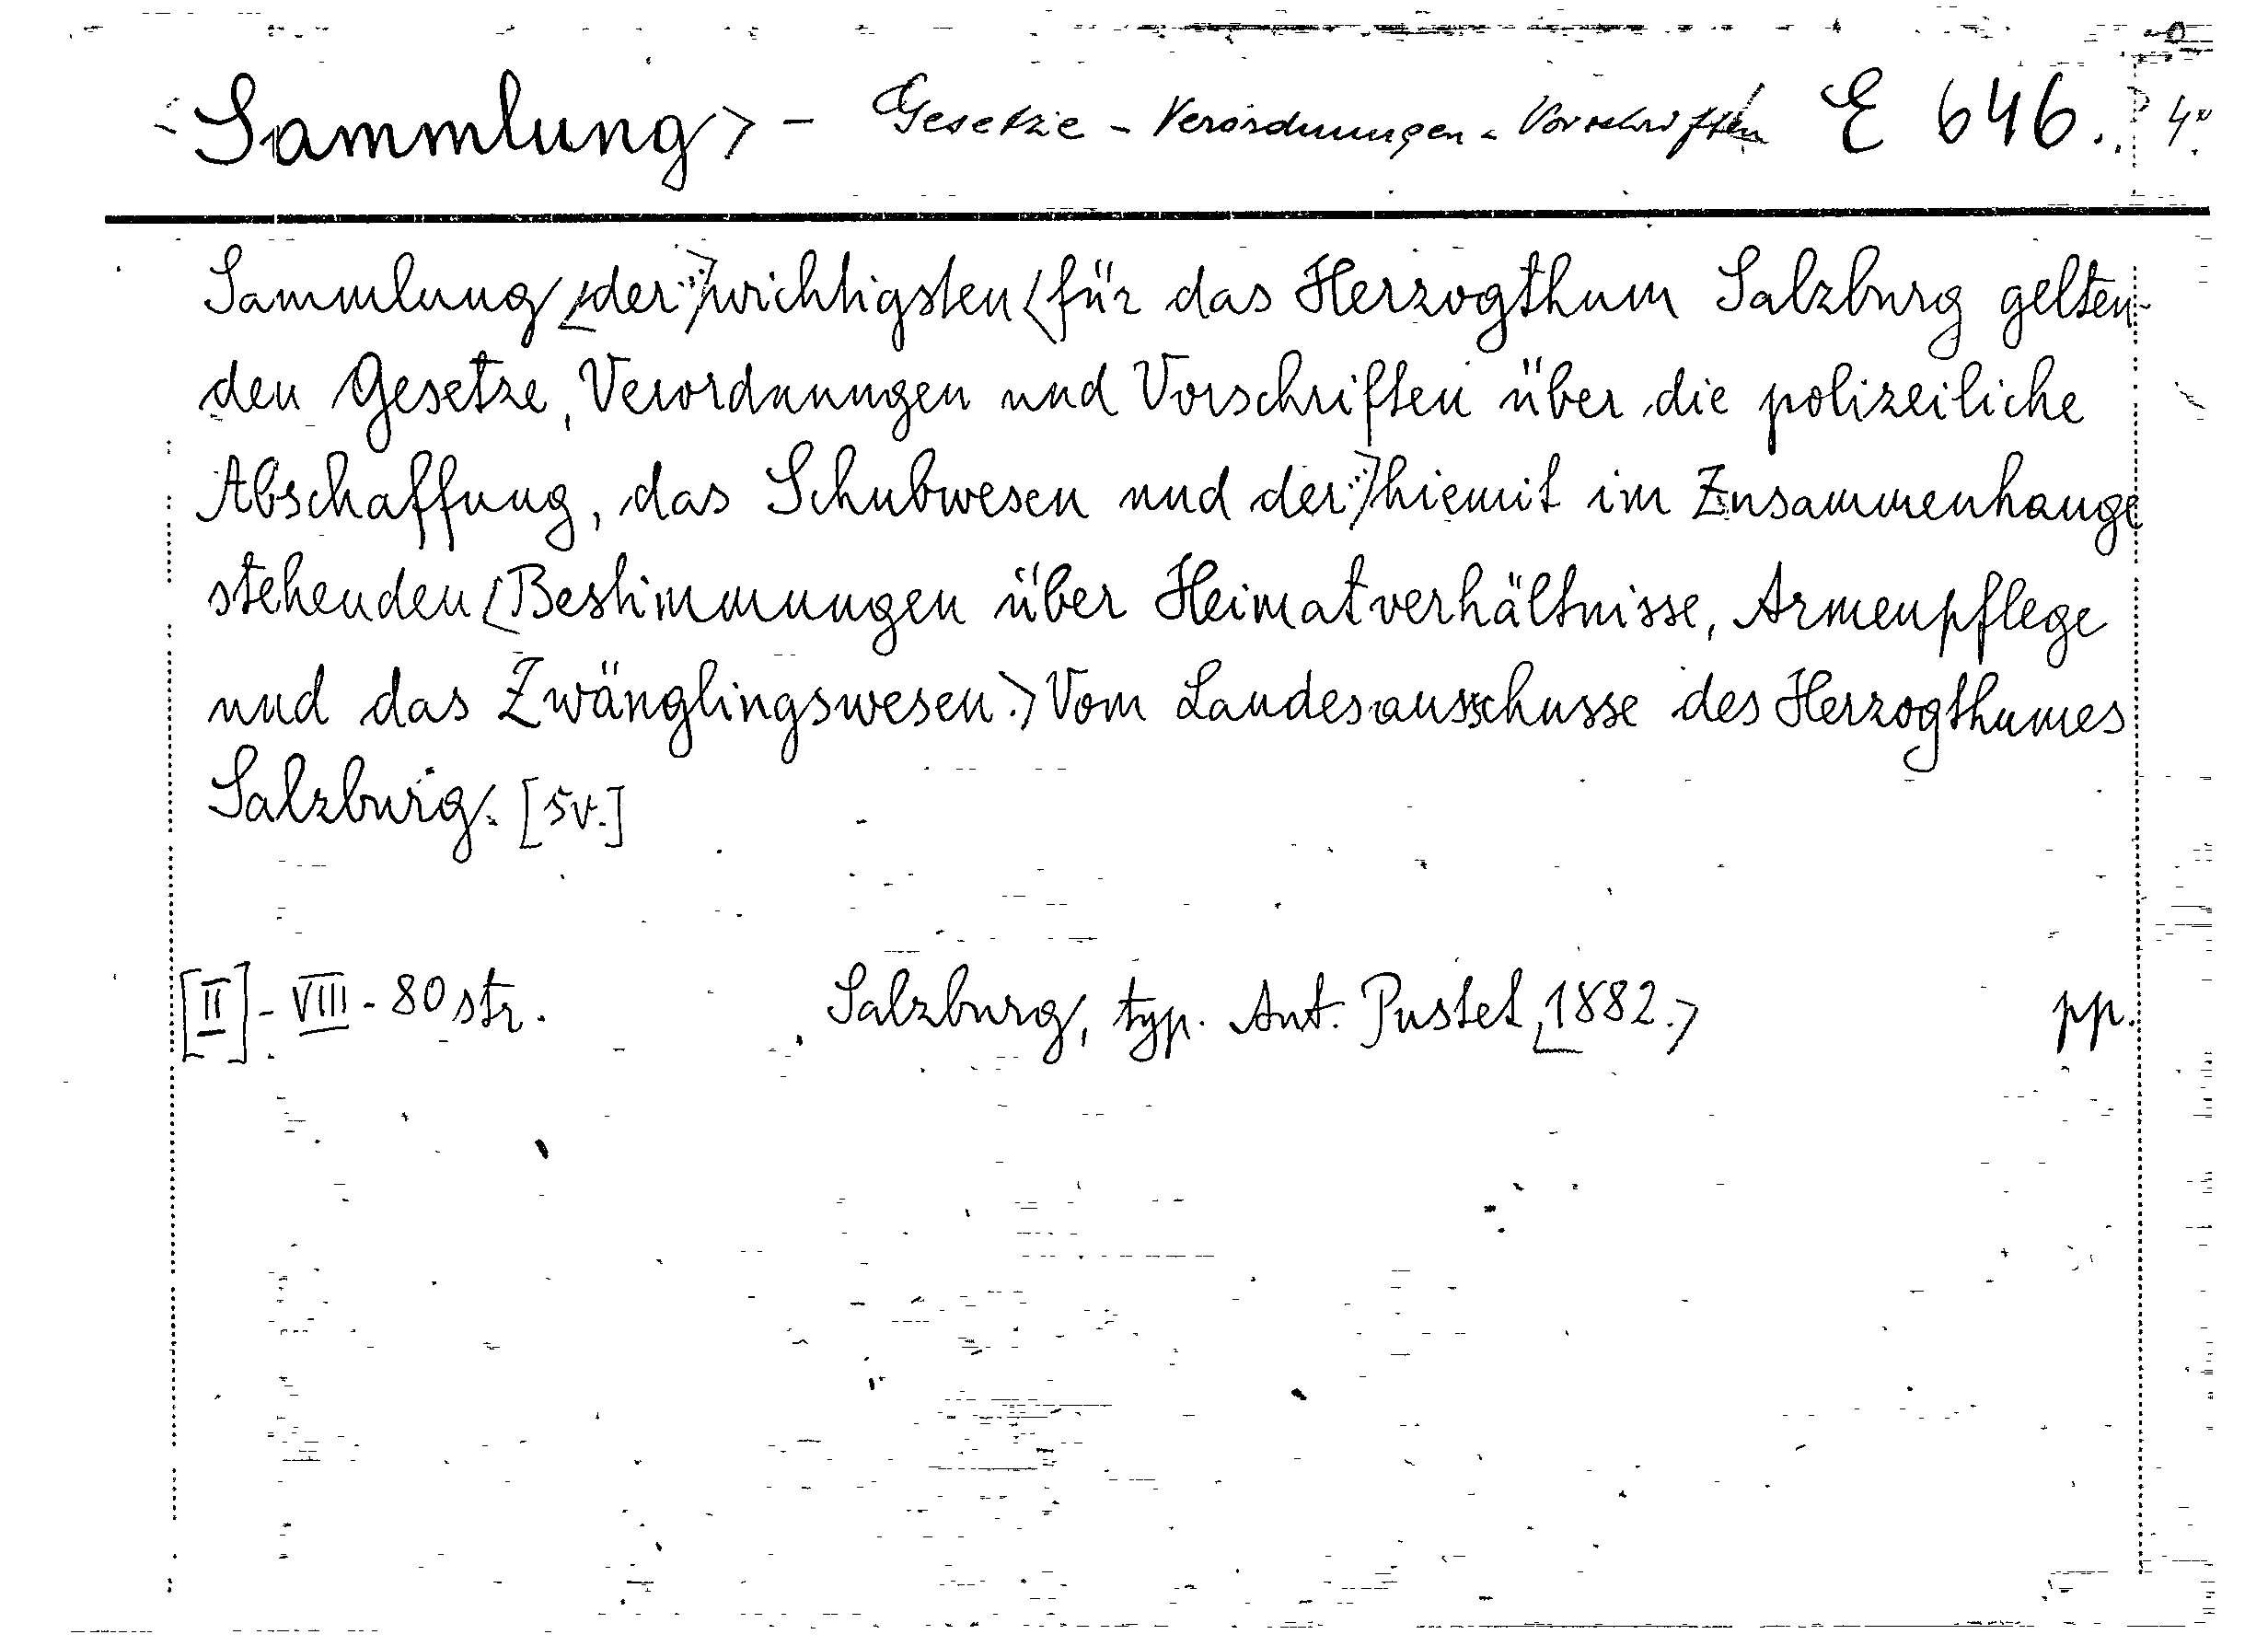 Sammlung> - Gesetze - Verordnungen - Vorschriften E 646. 4°
Sammlung <der...> wichtigsten <für das Herzogthum Salzburg gelten-
den Gesetze, Verordnungen und Vorschriften über die polizeiliche
Abschaffung, das Schubwesen und der...> hiemit im Zusammenhange
stehenden <Bestimmungen über Heimatverhältnisse, Armenpflege
und das Zwänglingswesen.> Vom Landesausschusse des Herzogthumes
Salzburg. [sv.]
[II] - VIII - 80 str. Salzburg, typ. Ant. Pustet, <1882.> pp.